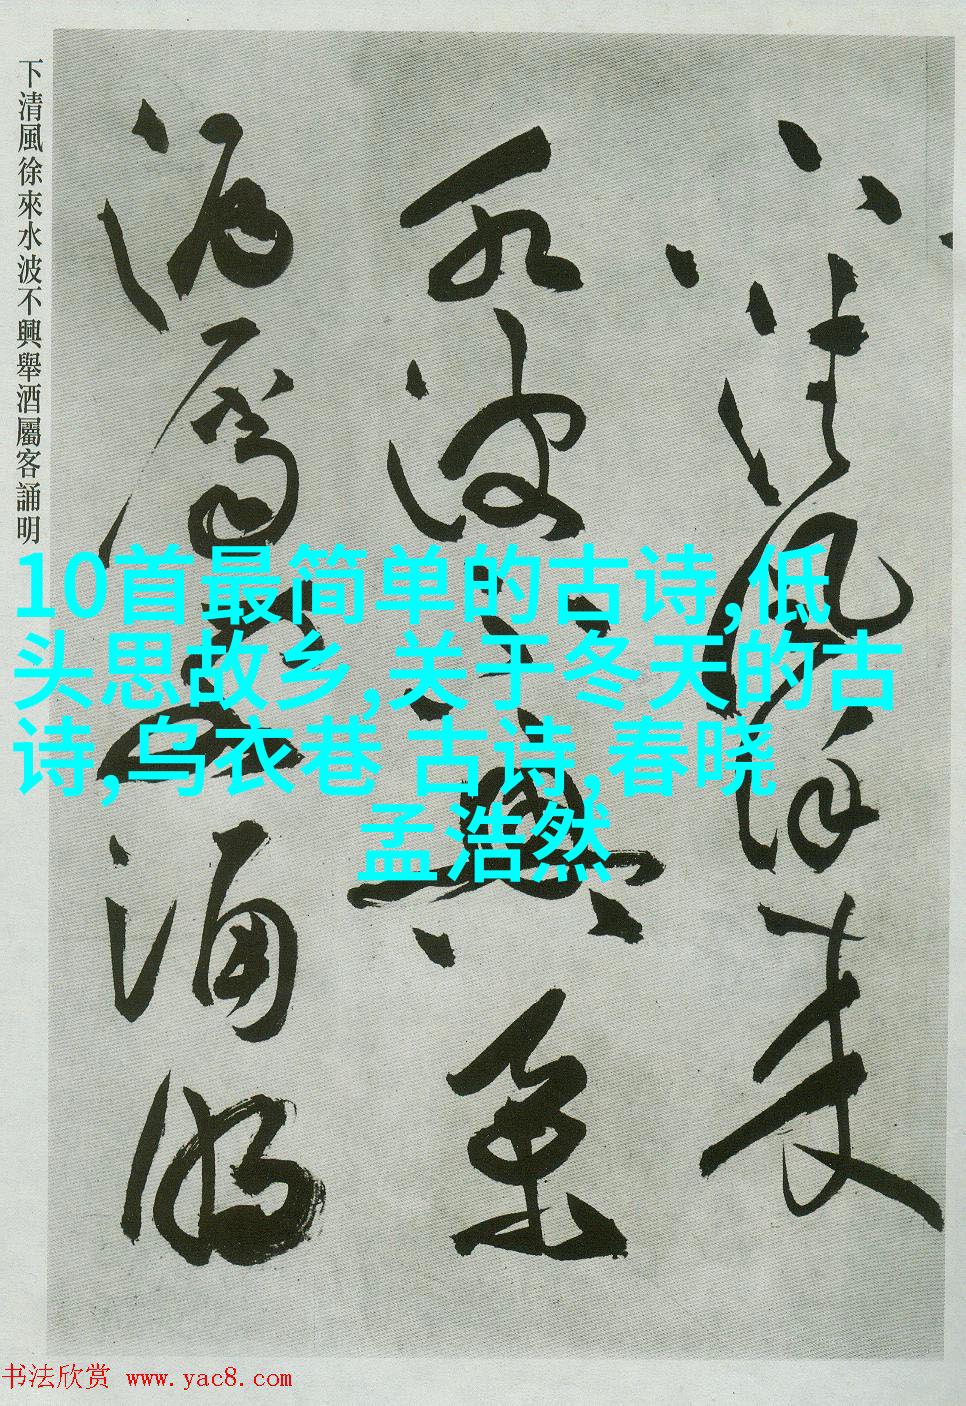 下清風徐來水波不興舉酒屬客誦明
下清風徐來
水波不興舉
酒屬客誦明
10首最简单的古诗,低
头思故乡,关于冬天的古
诗,乌衣巷 古诗,春晓
孟浩然
书法欣赏 www.yac8.com